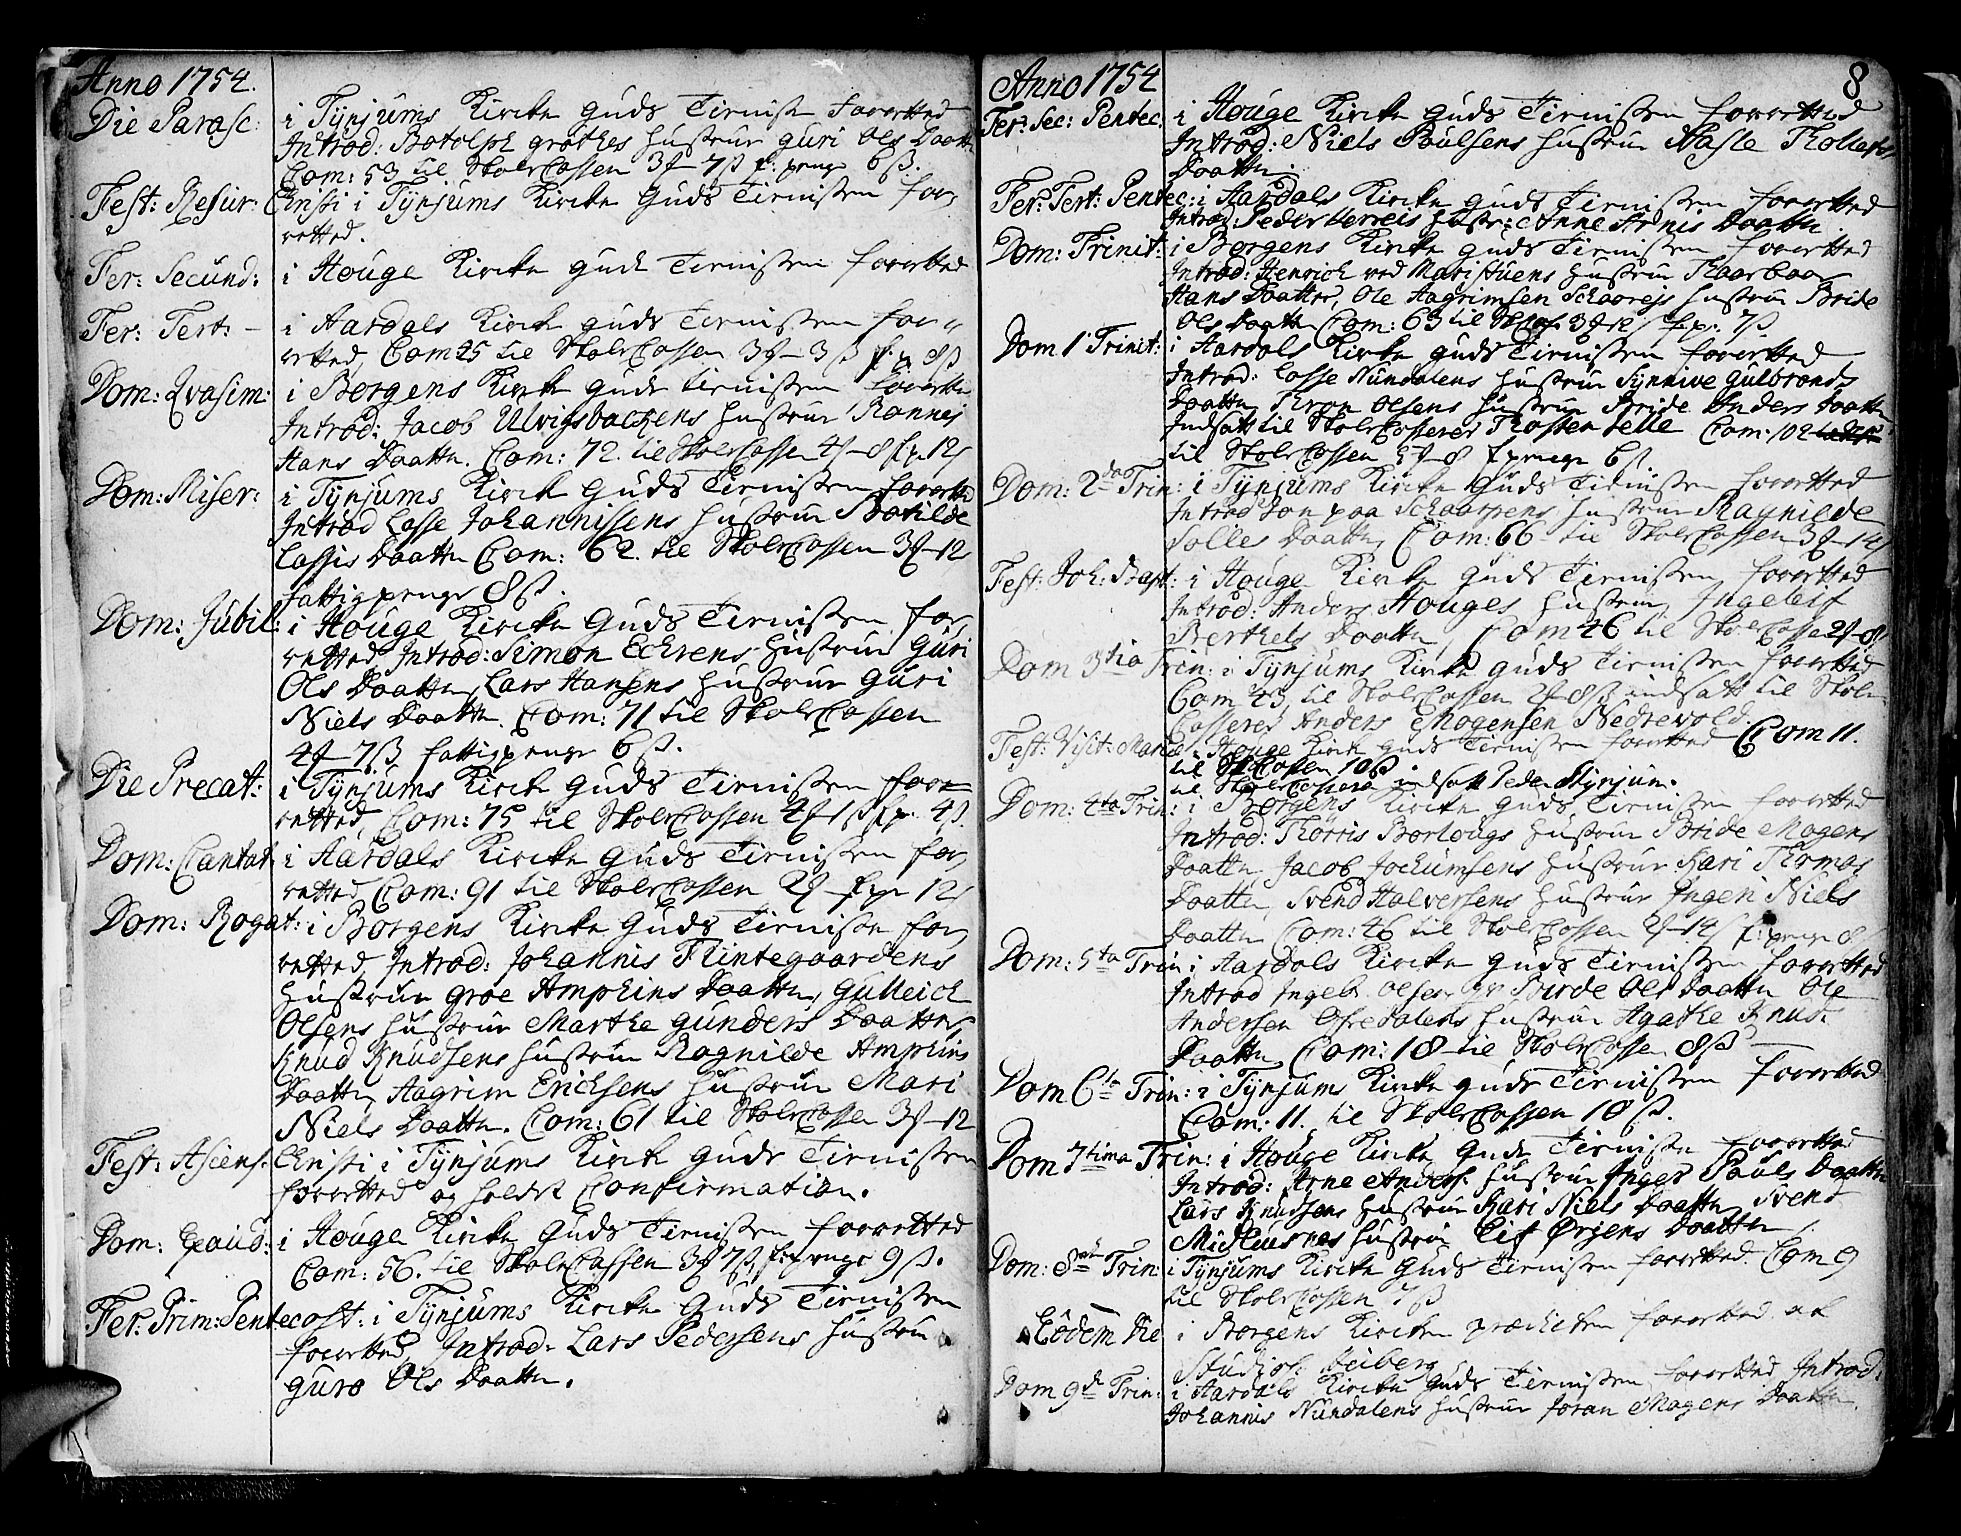 Anno 1754.
Die Parasc: i Tÿnjums Kircke Guds Tienisten forretted
Introd: Botolph grøthes Hustrue Guri Ols Daatter
Com: 53 til Skole Cassen 3 ℔ - 7 ß f: penge 6 ß.
Fest: Resur: Christi i Tÿnjums Kircke Guds Tienisten for
retted.
Fer: Secund: i Houge Kircke Guds Tienisten forretted
Fer: Tert: - i Aardals Kircke Guds Tienisten for
retted, Com 45 til Skole Cassen 3 - 3 ß f. p. 8 ß
Dom: Qvasim: i Borgens Kircke Guds Tienisten forretted
Introd: Jacob Ulvigsbackens Hustrue Rannei
Hans Daatter. Com: 72. til Skole Cassen 4 - 8 f. p. 12
Dom: Miser: i Tÿnjums Kircke Guds Tienisten forretted
Introd Lasse Johannissens Hustrue Botilde
Lassis Daatter Com: 62. til Skole Cassen 3 - 12
fattig penge 8 ß.
Dom: Jubil: i Houge Kircke Guds Tienisten for
retted, Introd: Simon Echrens Hustrue Guri
Ols Daatter, Lars Hansens Hustrue Guri
Niels Daatter. Com: 71 til Skole Cassen
4 - 7 ß fattig penge 6 ß.
Die Precat: i Tÿnjums Kircke Guds Tienisten for
retted, Com: 75 til Skole Cassen 4 - 1 ß f. p. 4 ß
Dom: Cantat: i Aardals Kircke Guds Tienisten for
retted, Com: 91 til Skole Cassen 2 - f. p. 12
Dom: Rogat: i Borgens Kircke Guds Tieniste for
retted, Introd: Johannis Flintegaardens
Hustrue groe Amphins Daatter, Gulleich
Olsens Hustrue Marthe Gunders Daatter,
Knud Knudsens Hustrue Ragnilde Amphins
Daatter, Aagrim Ericksens Hustrue Mari
Niels Daatter. Com: 61 til Skole Cassen 3 - 12
Fest: Ascens: Christi i Tÿnjums Kircke Guds Tienisten
forretted og holdt Confirmation.
Dom: Exaud: i Houge Kircke Guds Tienisten forretted
Com: 56. til Skole Cassen 3 7 ß, f: penge 9 ß.
Fer: Prim: Pentecost: i Tÿnjums Kircke Guds Tienisten
forretted, Introd: Lars Pedersens Hustrue
Guro Ols Daatter.
Anno 1754 8
Fer: Sec: Pentec: i Houge Kircke Guds Tienisten forretted
Introd: Niels Poulsens Hustrue Aasle Tholleifs
Daatter
Fer: Tert: Pentec: i Aardals Kircke Guds Tienisten forretted
Introd: Peder Verreis Hustr: Anne Arnis Daatter.
Dom: Trinit: i Borgens Kircke Guds Tienisten forretted
Introd: Henrich ved Maristuens Hustrue Thaarboer
Hans Daatter, Ole Aagrimsen Schaareis Hustrue Bride
Ols Daatter Com: 63 til Sk Cas 3 12 f. p. 7 ß
Dom 1 Trinit: i Aardals Kircke Guds Tienisten forretted
Introd: Lasse Nundalens Hustrue Synnive Gulbrands
Daatter, Thron Olsens Hustrue Bride Anders Daatter
Indsatt til Skole Casserer Thosten Lelle Com: 102
til Skole Cassen 5 - 8 f penge 6 ß.
Dom: 2da Trin: i Tÿnjums Kircke Guds Tienisten forretted
Introd Jon paa Schaarpens Hustrue Ragnilde
Solles Daatter, Com: 66 til Skole Cassen 3 - 14
Fest: Joh: Bapt: i Houge Kircke Guds Tienisten forretted
Introd: Anders Houges Hustrue Ingeleif
Berthels Daatter, Com 46 til Skole Casse 2 - 8
Dom 3tia Trin: i Tÿnjums Kircke Guds Tienisten forretted
Com 43, til Skole Cassen 2 - 8 ß indsatt til Skole
Casserer Anders Mogensen Nedrevold.
Fest: Visit: Mariæ i Houge Kircke Guds Tienisten forretted Com 11.
til Sk Cassen 10 ß
til Skole Casserer indsatt Peder Tÿnjum.
Dom: 4ta Trin: i Borgens Kircke Guds Tienisten forretted
Introd: Thorris Borlougs Hustrue Bride Mogens
Daatter, Jacob Jochumsens Hustrue Kari Thomas
Daatter, Svend Halversens Hustrue Ingeri Niels
Daatter Com: 46 til Skole Cassen 2 - 14 f: penge 8
Dom: 5ta Trin i Aardals Kircke Guds Tienisten forretted
Introd Ingebr Olsens Birde Ols Daatter Ole
Andersen Ofredalens Hustrue Agathe Knuds
Daatter, Com: 18 til Skole Cassen 8 ß
Dom 6ta Trin: i Tÿnjums Kircke Guds Tienisten forretted
Com: 11. til Skole Cassen 10 ß.
Dom 7tima Trin: i Houge Kircke Guds Tienisten forretted
Introd: Arne Anders: Hustrue Inger Pouls Daatter
Lars Knudsens Hustrue Kari Niels Daatter, Svend
Midlusnes Hustrue Eif Ørjens Daatter.
Dom: 8av Trin: i Tÿnjums Kircke Guds Tienisten forretted. Com 9
til Skole Cassen 7 ß
Eôdem Die i Borgens Kircken prædicken forretted af
Studios: Heiberg
Dom 9de Trin: i Aardals Kircke Guds Tienisten forretted Introd:
Johannis Nundalens Hustrue Joran Mogens Daatter.